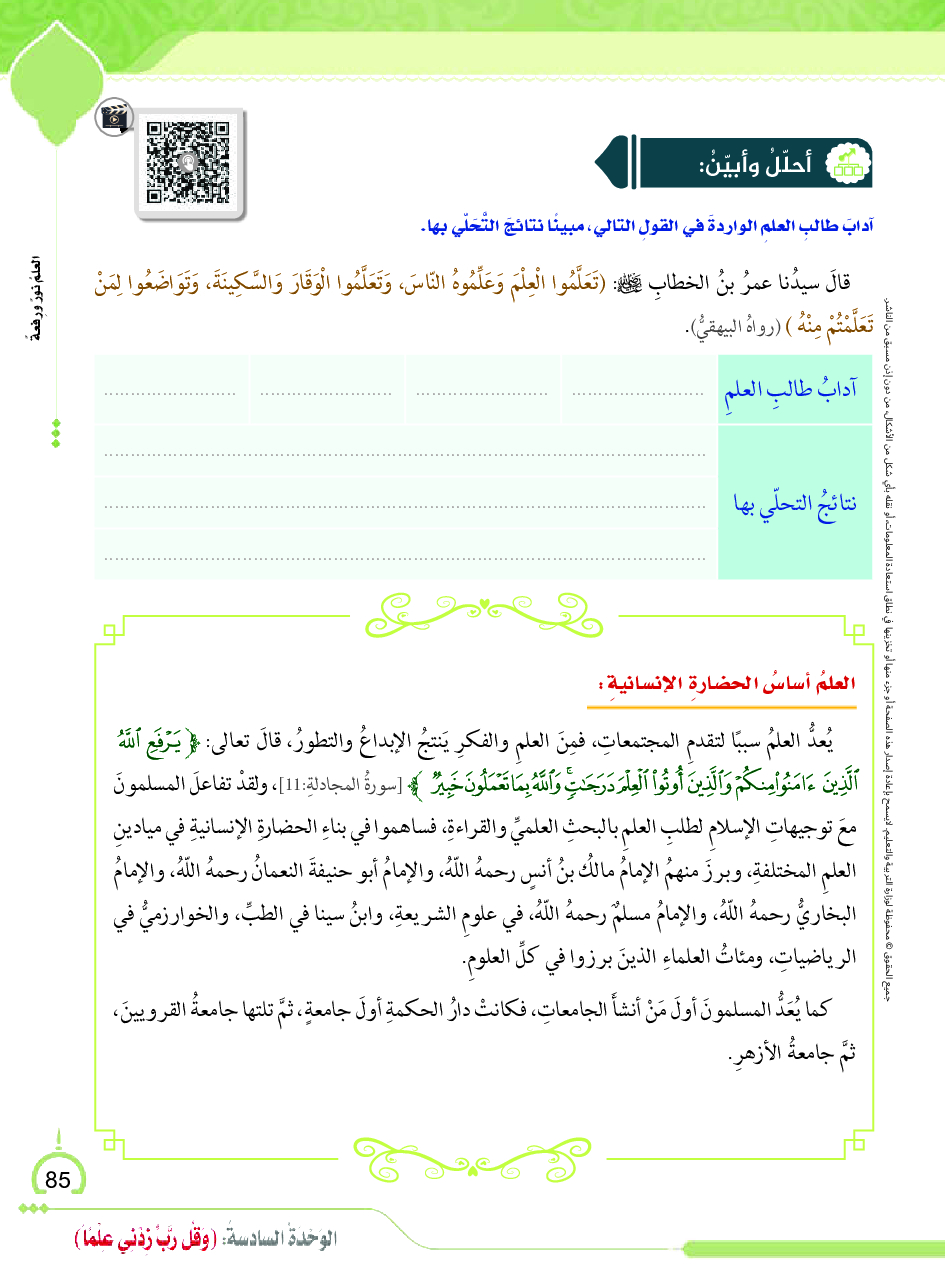 أحلّلُ وأبيّنُ:
آدابَ طالبِ العلمِ الواردةَ في القولِ التالي، مبينًا نتائجَ التَّحَلّي بها.
قالَ سيدُنا عمرُ بنُ الخطابِ ﷺ: (تَعَلَّمُوا الْعِلْمَ وَعَلِّمُوهُ النّاسَ، وَتَعَلَّمُوا الْوَقَارَ وَالسَّكِينَةَ، وَتَوَاضَعُوا لِمَنْ
تَعَلَّمْتُمْ مِنْهُ ) (رواهُ البيهقيُّ).
آدابُ طالبِ العلمِ
نتائجُ التحلّي بها
العلمُ أساسُ الحضارةِ الإنسانيةِ :
يُعدُّ العلمُ سببًا لتقدمِ المجتمعاتِ، فمِنَ العلمِ والفكرِ يَنتجُ الإبداعُ والتطورُ، قالَ تعالى: ﴿ يَرْفَعِ ٱللَّهُ
ٱلَّذِينَ ءَامَنُوا۟ مِنكُمْ وَٱلَّذِينَ أُوتُوا۟ ٱلْعِلْمَ دَرَجَٰتٍۚ وَٱللَّهُ بِمَا تَعْمَلُونَ خَبِيرٌ ﴾ [سورةُ المجادلةِ:11]، ولقدْ تفاعلَ المسلمونَ
معَ توجيهاتِ الإسلامِ لطلبِ العلمِ بالبحثِ العلميِّ والقراءةِ، فساهموا في بناءِ الحضارةِ الإنسانيةِ في ميادينِ
العلمِ المختلفةِ، وبرزَ منهمُ الإمامُ مالكُ بنُ أنسٍ رحمهُ اللّهُ، والإمامُ أبو حنيفةَ النعمانُ رحمهُ اللّهُ، والإمامُ
البخاريُّ رحمهُ اللّهُ، والإمامُ مسلمٌ رحمهُ اللّهُ، في علومِ الشريعةِ، وابنُ سينا في الطبِّ، والخوارزميُّ في
الرياضياتِ، ومئاتُ العلماءِ الذينَ برزوا في كلِّ العلومِ.
كما يُعَدُّ المسلمونَ أولَ مَنْ أنشأَ الجامعاتِ، فكانتْ دارُ الحكمةِ أولَ جامعةٍ، ثمَّ تلتها جامعةُ القرويينَ،
ثمَّ جامعةُ الأزهرِ.
العلمُ نورٌ ورفعةٌ
جميع الحقوق © محفوظة لوزارة التربية والتعليم. لايسمح بإعادة إصدار هذه الصفحة أو جزء منها أو تخزينها في نطاق استعادة المعلومات، أو نقله بأي شكل من الأشكال، من دون إذن مسبق من الناشر
85
الوَحْدَةُ السادسةُ: (وَقُل رَّبِّ زِدْنِي عِلْمًا)